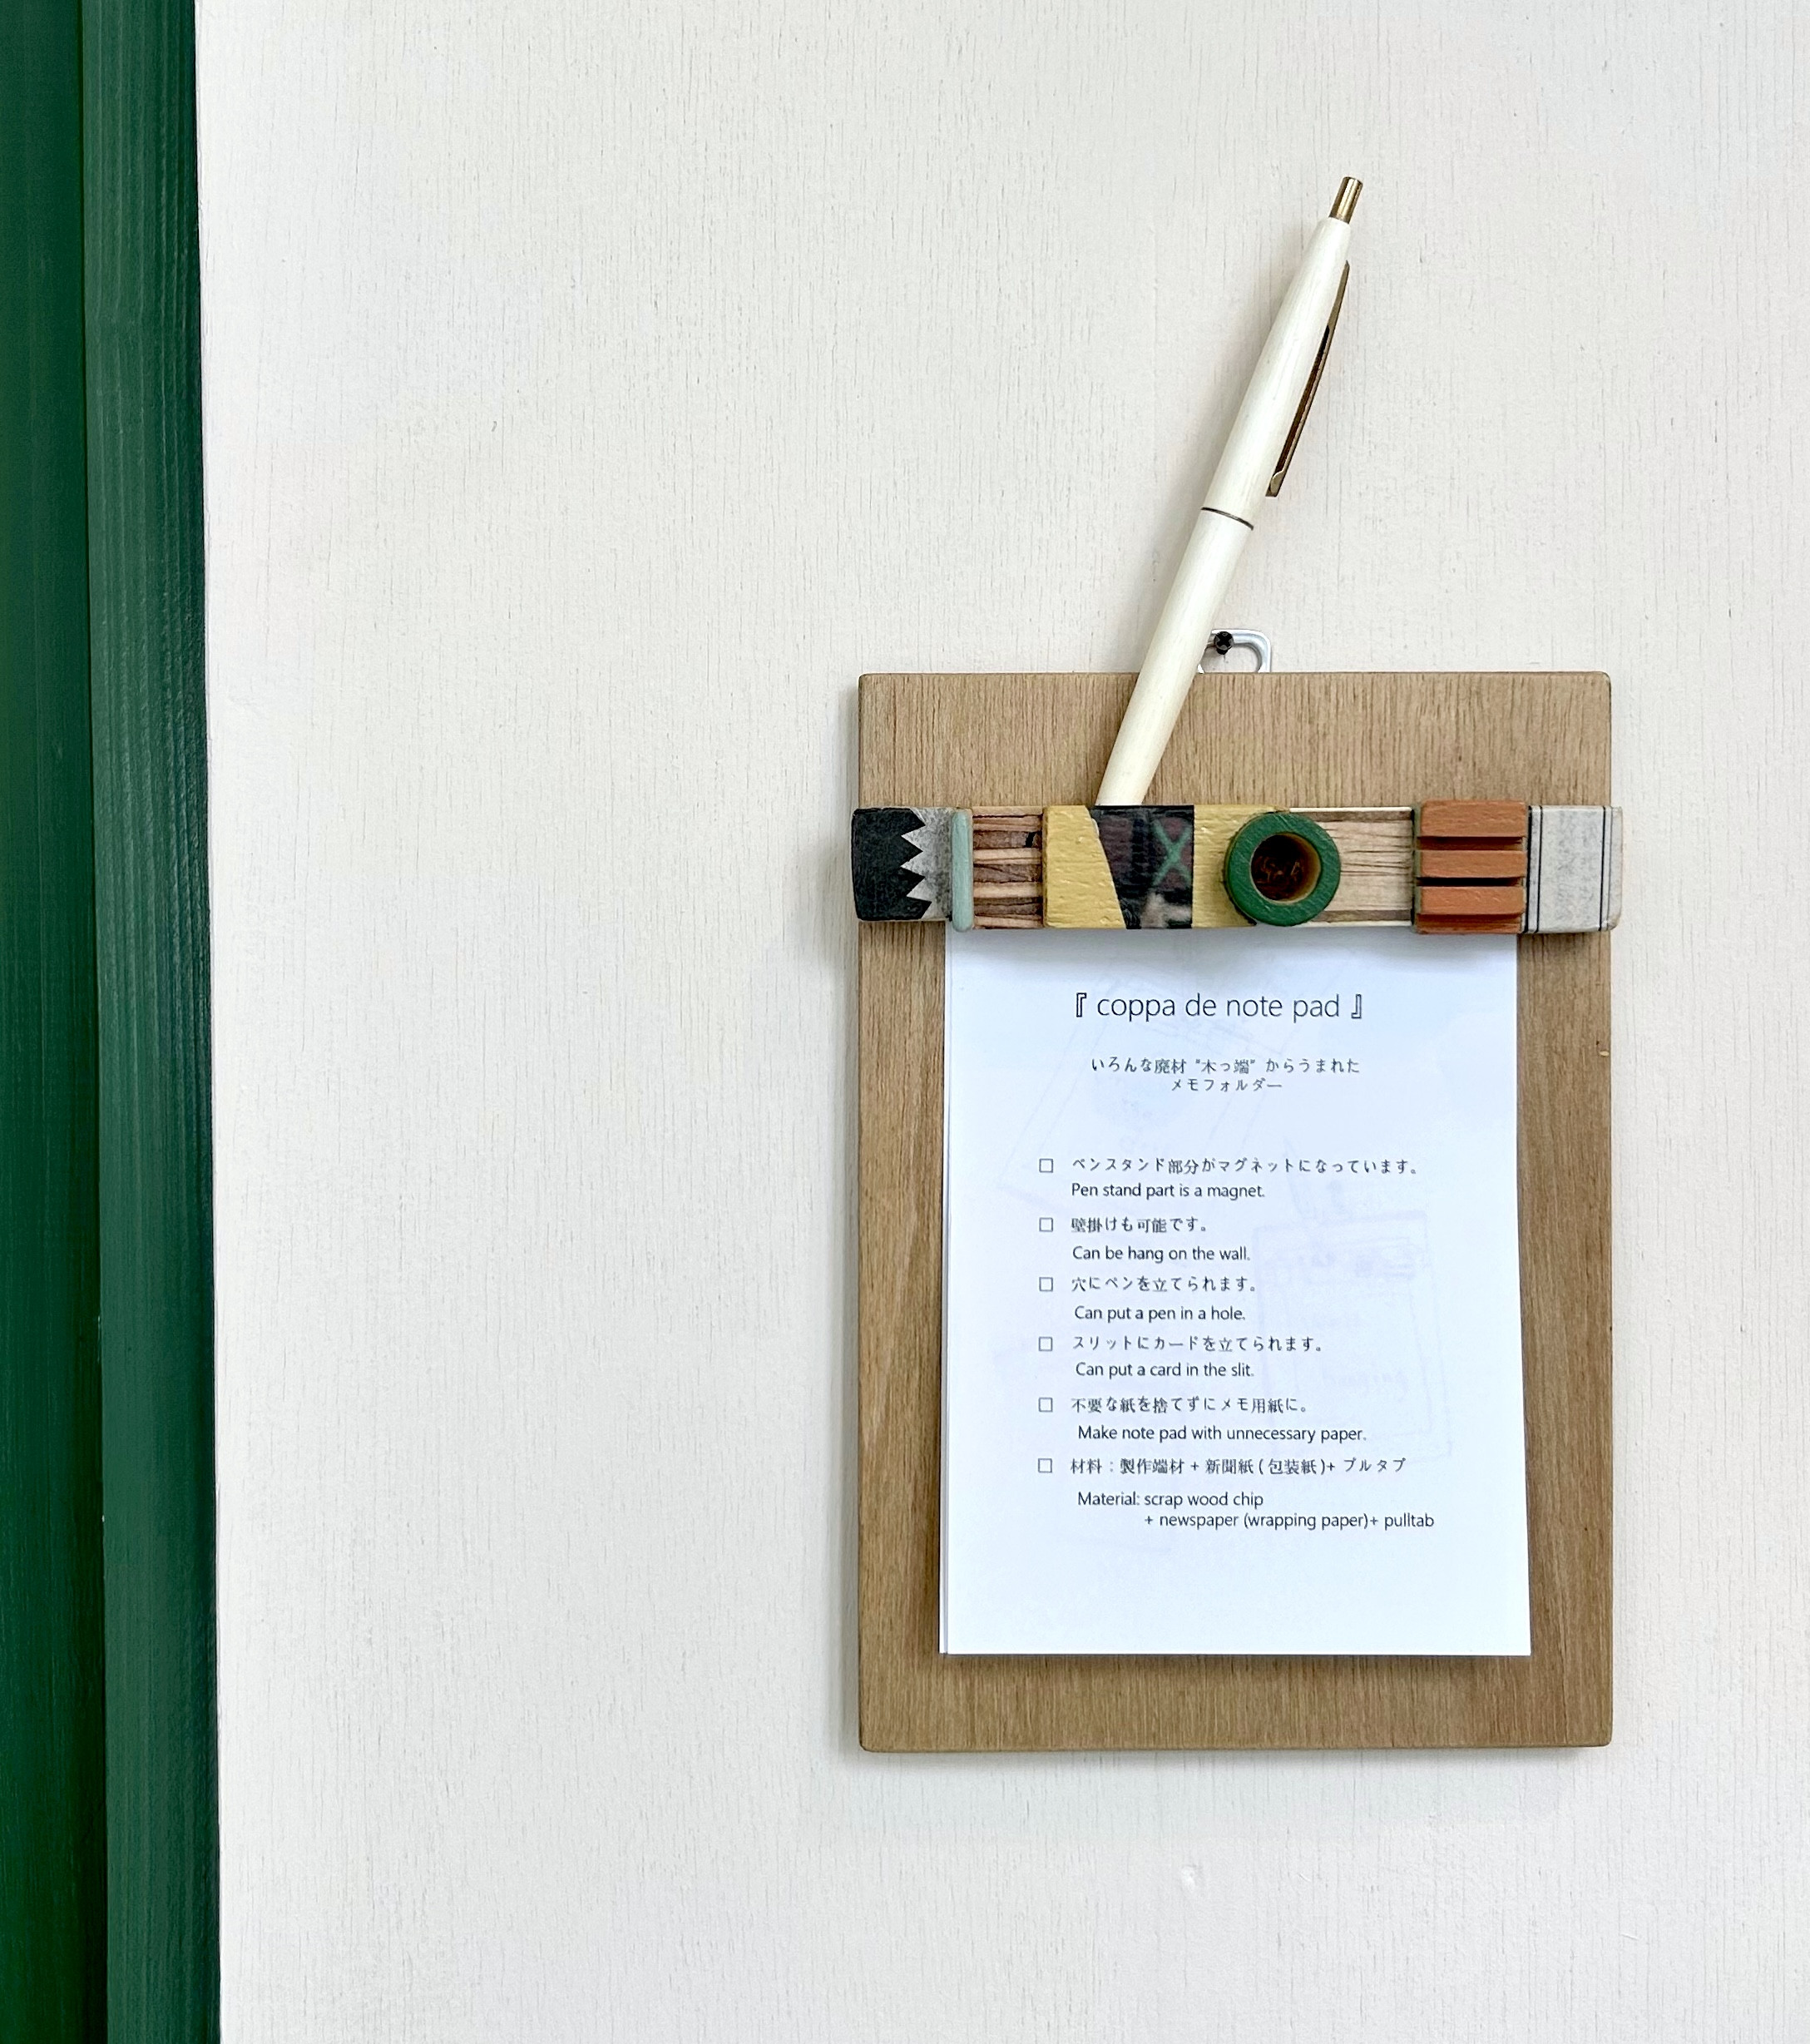 『 coppa de note pad 』
いろんな廃材 “木っ端” からうまれた
メモフォルダー
□ ペンスタンド部分がマグネットになっています。
Pen stand part is a magnet.
□ 壁掛けも可能です。
Can be hang on the wall.
□ 穴にペンを立てられます。
Can put a pen in a hole.
□ スリットにカードを立てられます。
Can put a card in the slit.
□ 不要な紙を捨てずにメモ用紙に。
Make note pad with unnecessary paper.
□ 材料：製作端材 + 新聞紙 ( 包装紙 )+ プルタブ
Material: scrap wood chip
+ newspaper (wrapping paper)+ pulltab